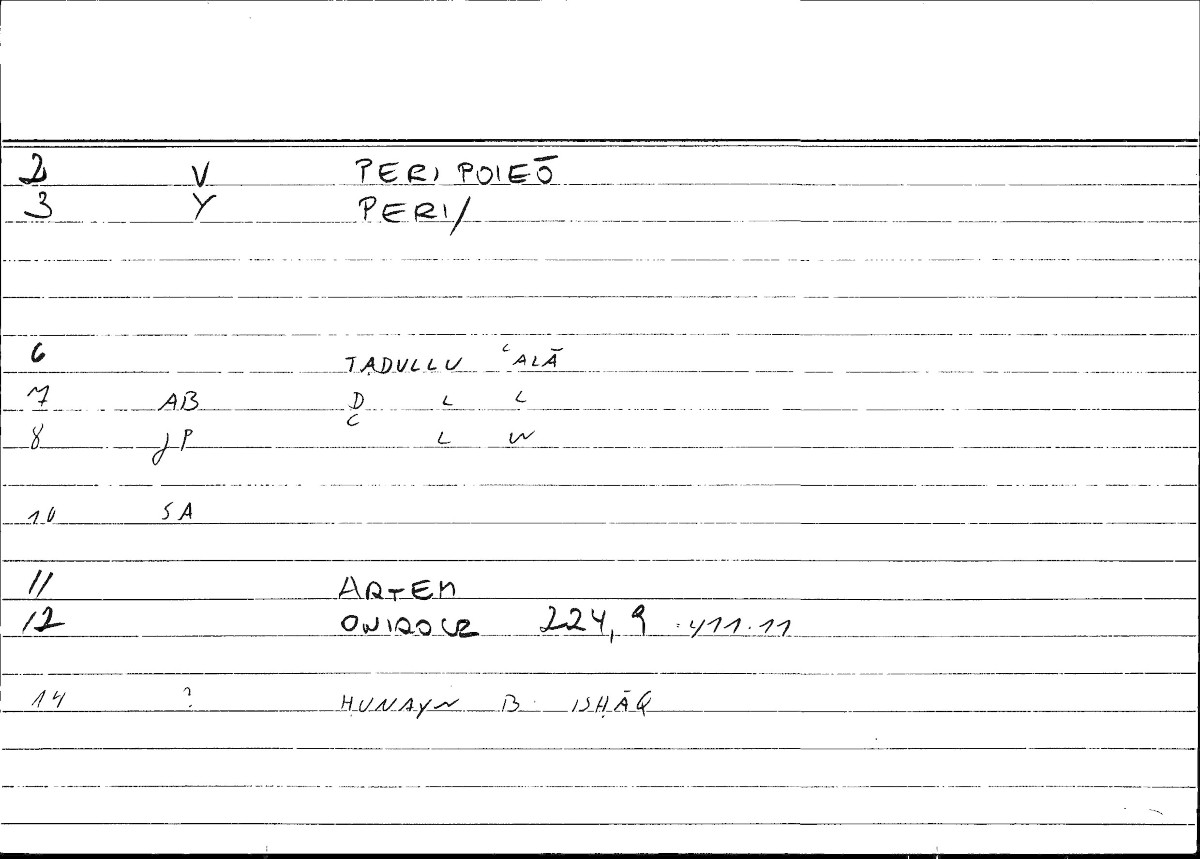 2 V PERI POIEŌ
3 Y PERI/
6 TADULLU ʿALĀ
7 AB D L L
8 JP ʿ L W
10 SA
11 ARTEM
12 ONIROCR 224,9 411.11
14 ? ḤUNAYN B. ISḤĀQ